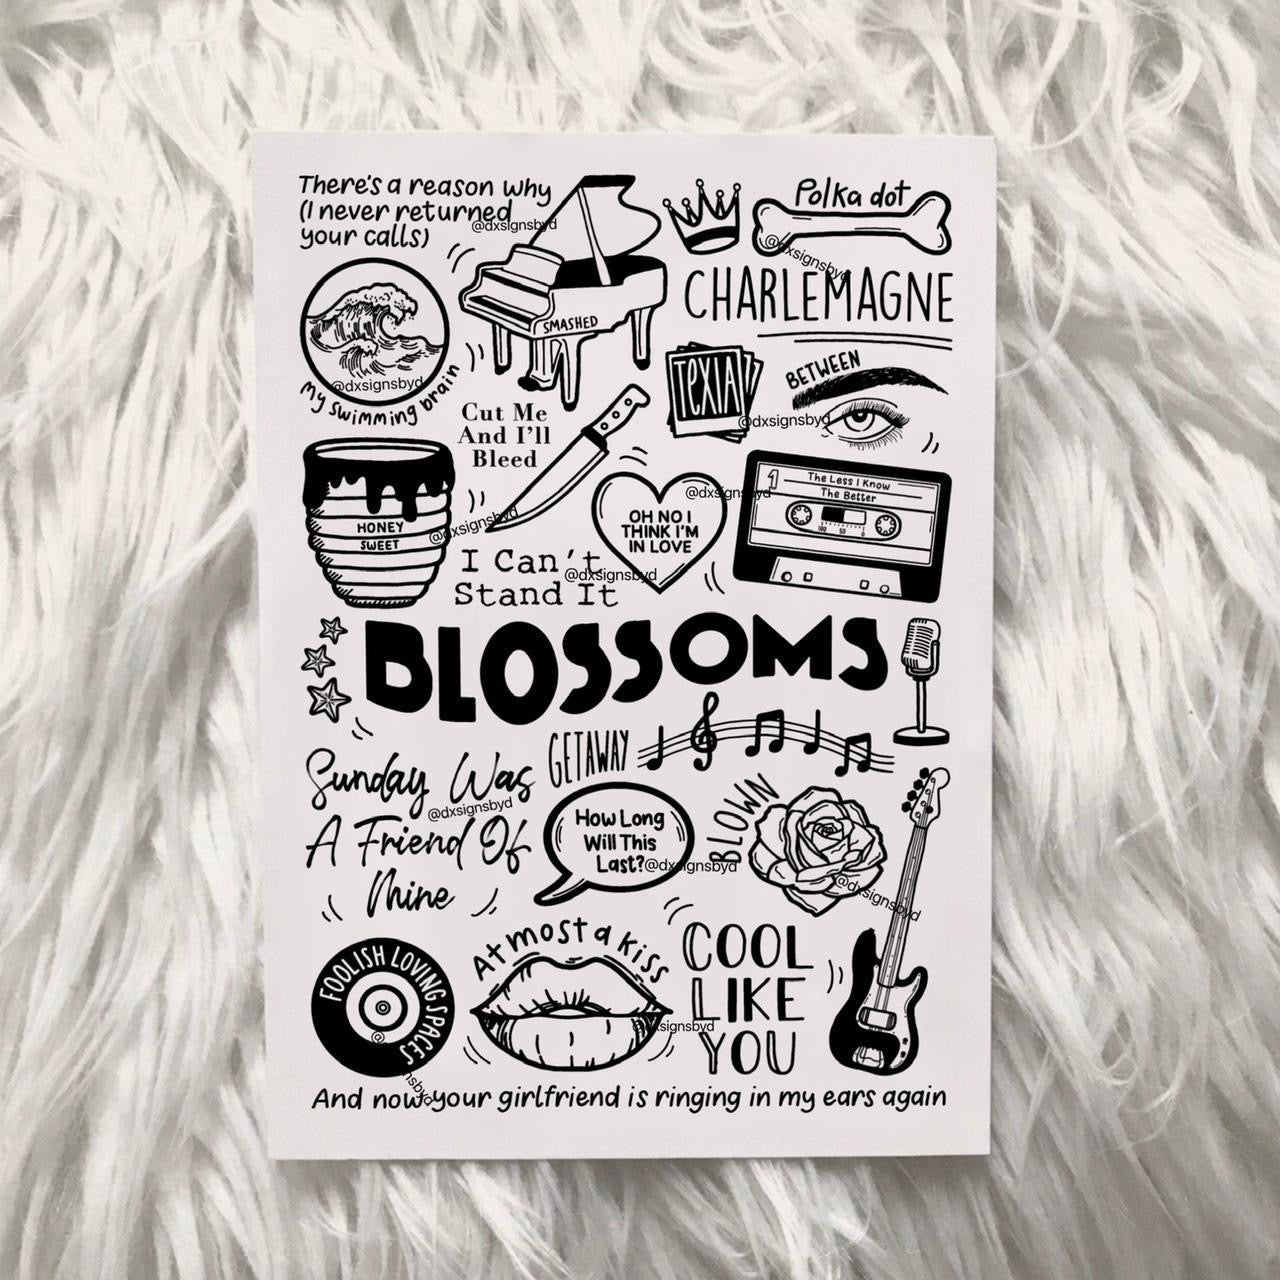 There's a reason why
(I never returned
your calls)
@dxsignsbyd
SMASHED
Polka dot
@dxsignsbyd
CHARLEMAGNE
@dxsignsbyd
My swimming brain
TEXIA
BETWEEN
@dxsignsbyd
Cut Me
And I'll
Bleed
@dxsignsbyd
HONEY
SWEET
@dxsignsbyd
OH NO I
THINK I'M
IN LOVE
1
The Less I Know
The Better
100 50 0
I Can't
Stand It
@dxsignsbyd
BLOSSOMS
GETAWAY
Sunday Was
A Friend Of
Mine
@dxsignsbyd
How Long
Will This
Last?
@dxsignsbyd
BLOWN
@dxsignsbyd
FOOLISH LOVING SPACES
@ nsbyd
At most a kiss
@dxsignsbyd
COOL
LIKE
YOU
And now your girlfriend is ringing in my ears again